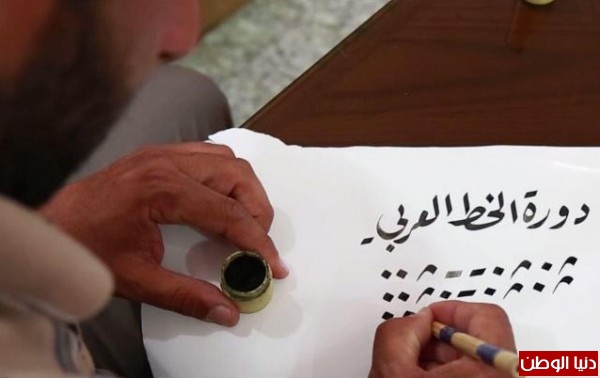 دورة الخط العربي
دنيا الوطن